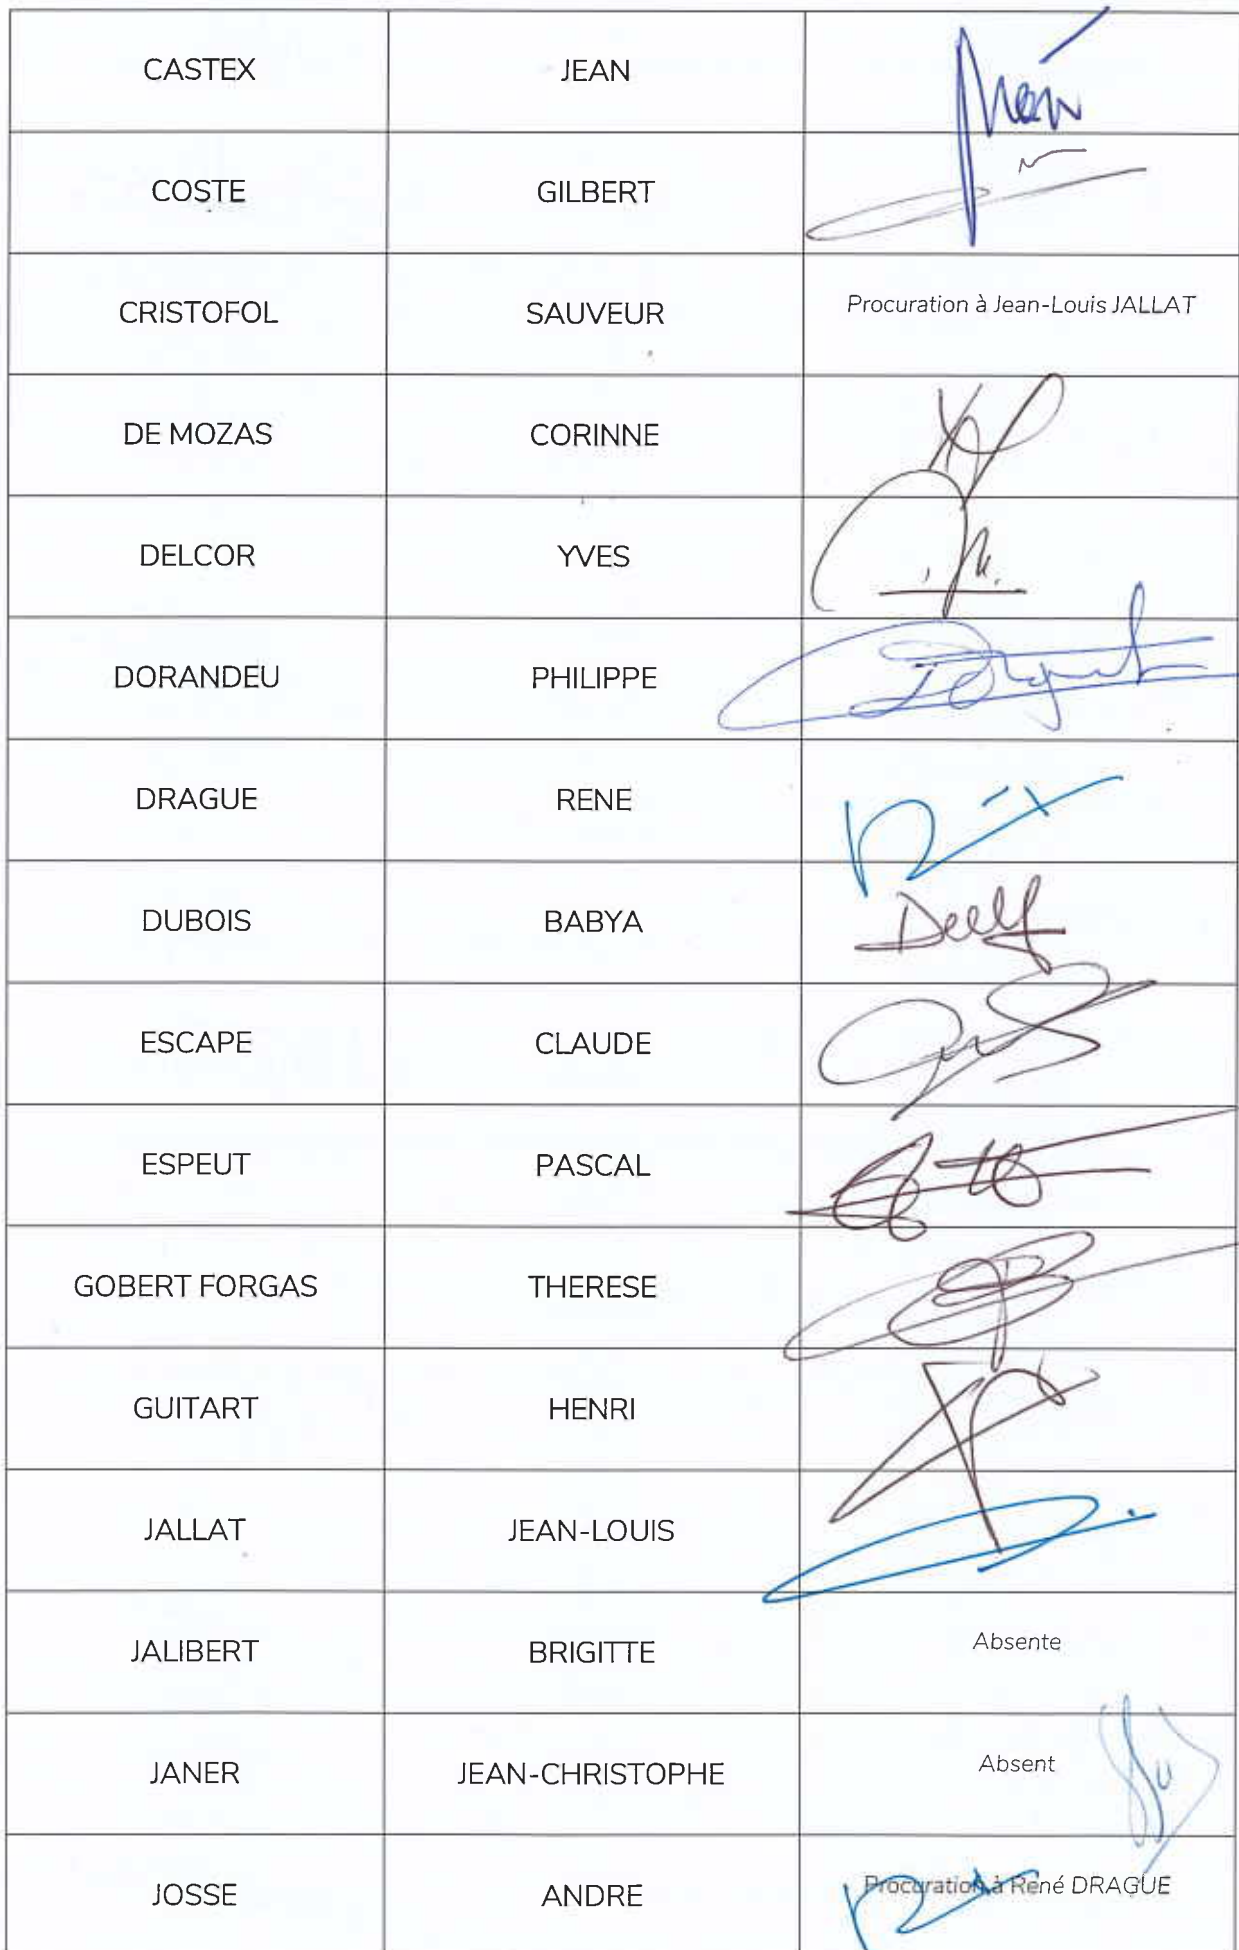 CASTEX JEAN
COSTE GILBERT
CRISTOFOL SAUVEUR Procuration à Jean-Louis JALLAT
DE MOZAS CORINNE
DELCOR YVES
DORANDEU PHILIPPE
DRAGUE RENE
DUBOIS BABYA
ESCAPE CLAUDE
ESPEUT PASCAL
GOBERT FORGAS THERESE
GUITART HENRI
JALLAT JEAN-LOUIS
JALIBERT BRIGITTE Absente
JANER JEAN-CHRISTOPHE Absent
JOSSE ANDRE Procuration à René DRAGUE